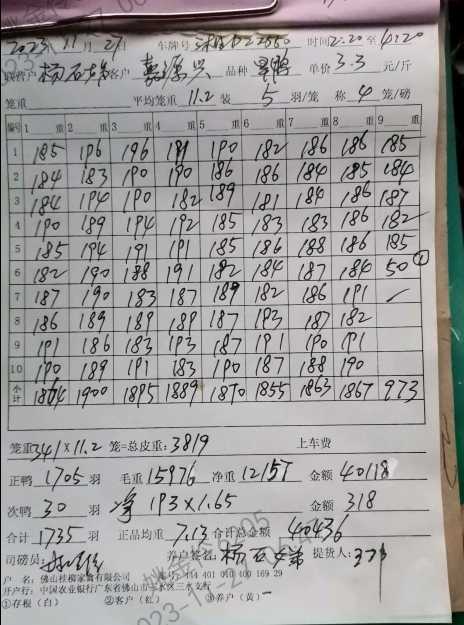 2023年11月27日 车牌号 时间2:20至4:20
联营户 杨石弟 客户 嘉源兴 品种 单价3.3元/斤
笼重 平均笼重11.2 装5羽/笼 称4笼/磅
编号 1 重 2 重 3 重 4 重 5 重 6 重 7 重 8 重 9 重
1 185 196 196 191 190 182 186 186 185
2 184 183 190 190 186 186 184 185 184
3 184 194 190 182 189 181 184 186 187
4 190 189 194 192 185 183 183 186 182
5 185 194 191 191 185 186 188 186 185
6 182 190 188 191 182 184 187 184 50 ①
7 187 190 183 187 189 182 186 191
8 186 189 189 189 187 193 187 182
9 191 186 183 193 187 191 190 191
10 190 189 191 183 190 187 188 190
小计 1864 1900 1895 1889 1870 1855 1863 1867 973
笼重341×11.2 笼=总皮重:3819 上车费
正鸭1705羽 毛重15976 净重12157 金额40118
次鸭30羽 净193×1.65 金额318
合计1735羽 正品均重7.13 合计总金额40436
司磅员: 养户签名:杨石弟 提货人:
户 名:佛山桂柳家禽有限公司 账号:444 401 040 400 169 29
开户行:中国农业银行广东省佛山市三水区三水支行
①存根(白) ②客户(红) ③养户(黄)